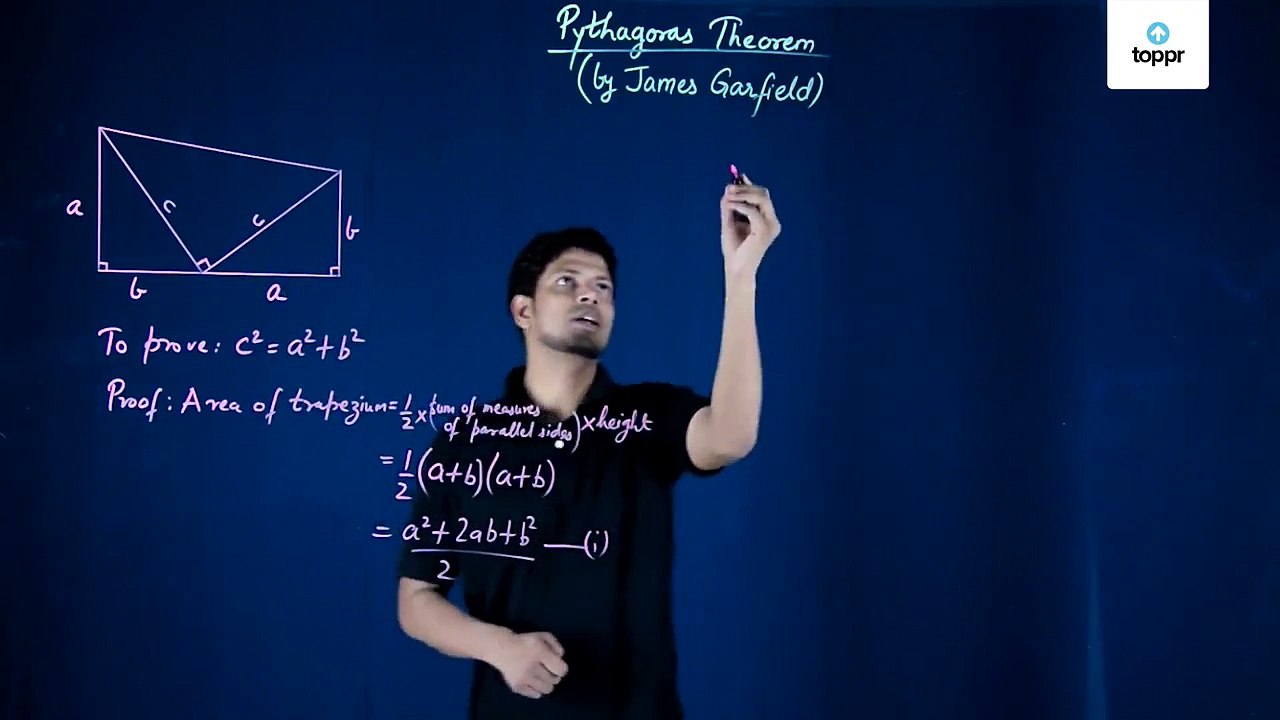 Pythagoras Theorem
(by James Garfield)
toppr
a
c
c
b
b
a
To prove: c² = a² + b²
Proof: Area of trapezium = 1/2 × (sum of measures of parallel sides) × height
= 1/2 (a+b)(a+b)
= a² + 2ab + b² / 2 —(i)